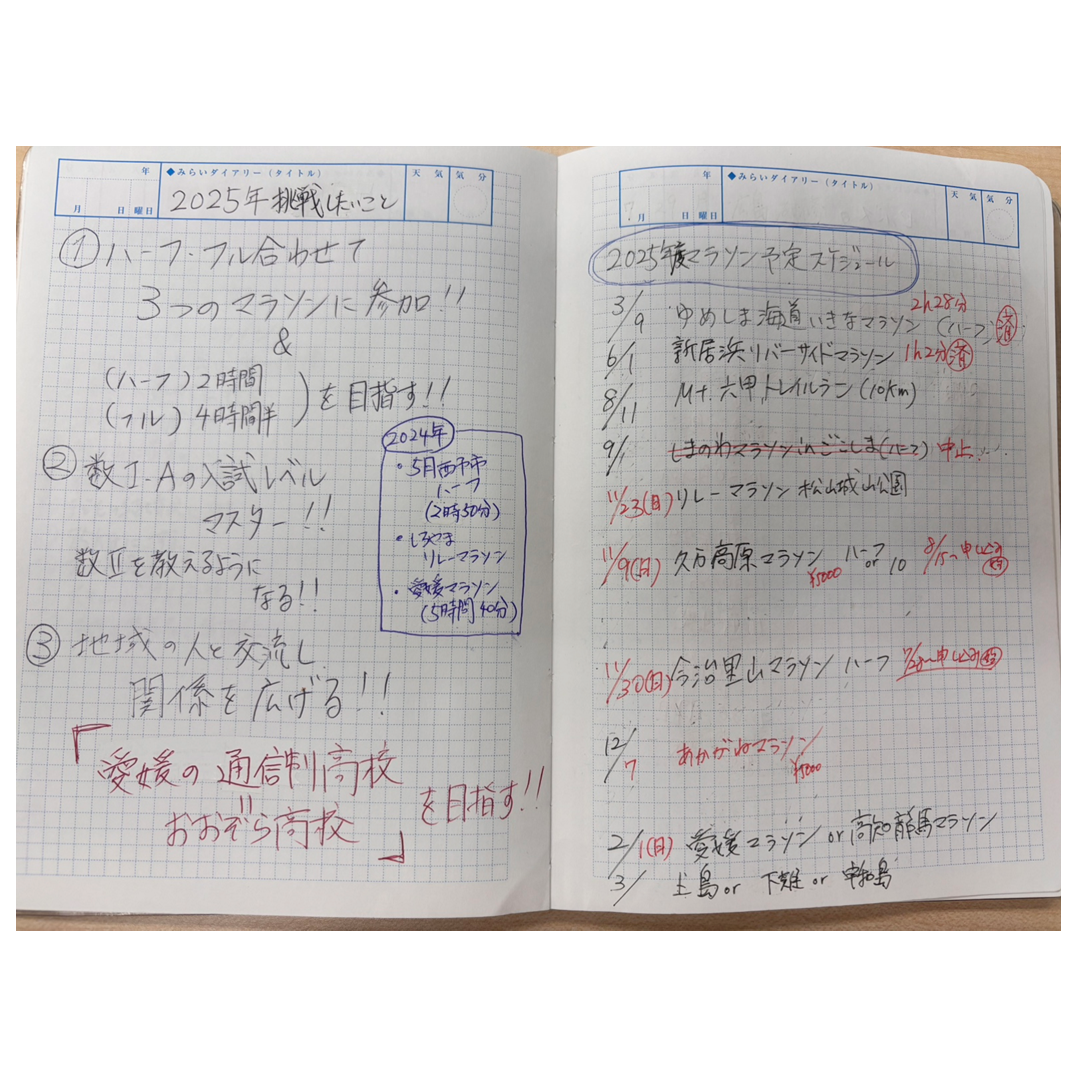 年
◆みらいダイアリー（タイトル）
天 気
気 分
月 日 曜日
2025年 挑戦したいこと
① ハーフ・フル合わせて
3つのマラソンに参加!!
&
(ハーフ) 2時間
(フル) 4時間半
を目指す!!
② 数Ⅰ・Aの入試レベル
マスター!!
数Ⅱを教えるように
なる!!
2024年
・5月西予市
ハーフ
(2時50分)
・しろやま
リレーマラソン
・愛媛マラソン
(5時間40分)
③ 地域の人と交流し
関係を広げる!!
「愛媛の通信制高校
=
おおぞら高校」
を目指す!!
年
◆みらいダイアリー（タイトル）
天 気
気 分
7 月 日 曜日
2025年度マラソン予定スケジュール
3/9 ゆめしま海道いきなマラソン (ハーフ) 2h28分 済
6/1 新居浜リバーサイドマラソン 1h2分 済
8/11 Mt.六甲トレイルラン (10km)
9/ しまのわマラソン in ごごしま(ハーフ) 中止
11/23(日) リレーマラソン 松山城山公園
11/9(日) 久万高原マラソン ハーフ or 10 8/15〜申込み
¥5000
11/30(日) 今治里山マラソン ハーフ 申込み
12/7 あかがねマラソン
¥5000
2/1(日) 愛媛マラソン or 高知龍馬マラソン
3/ 上島 or 下灘 or 中島